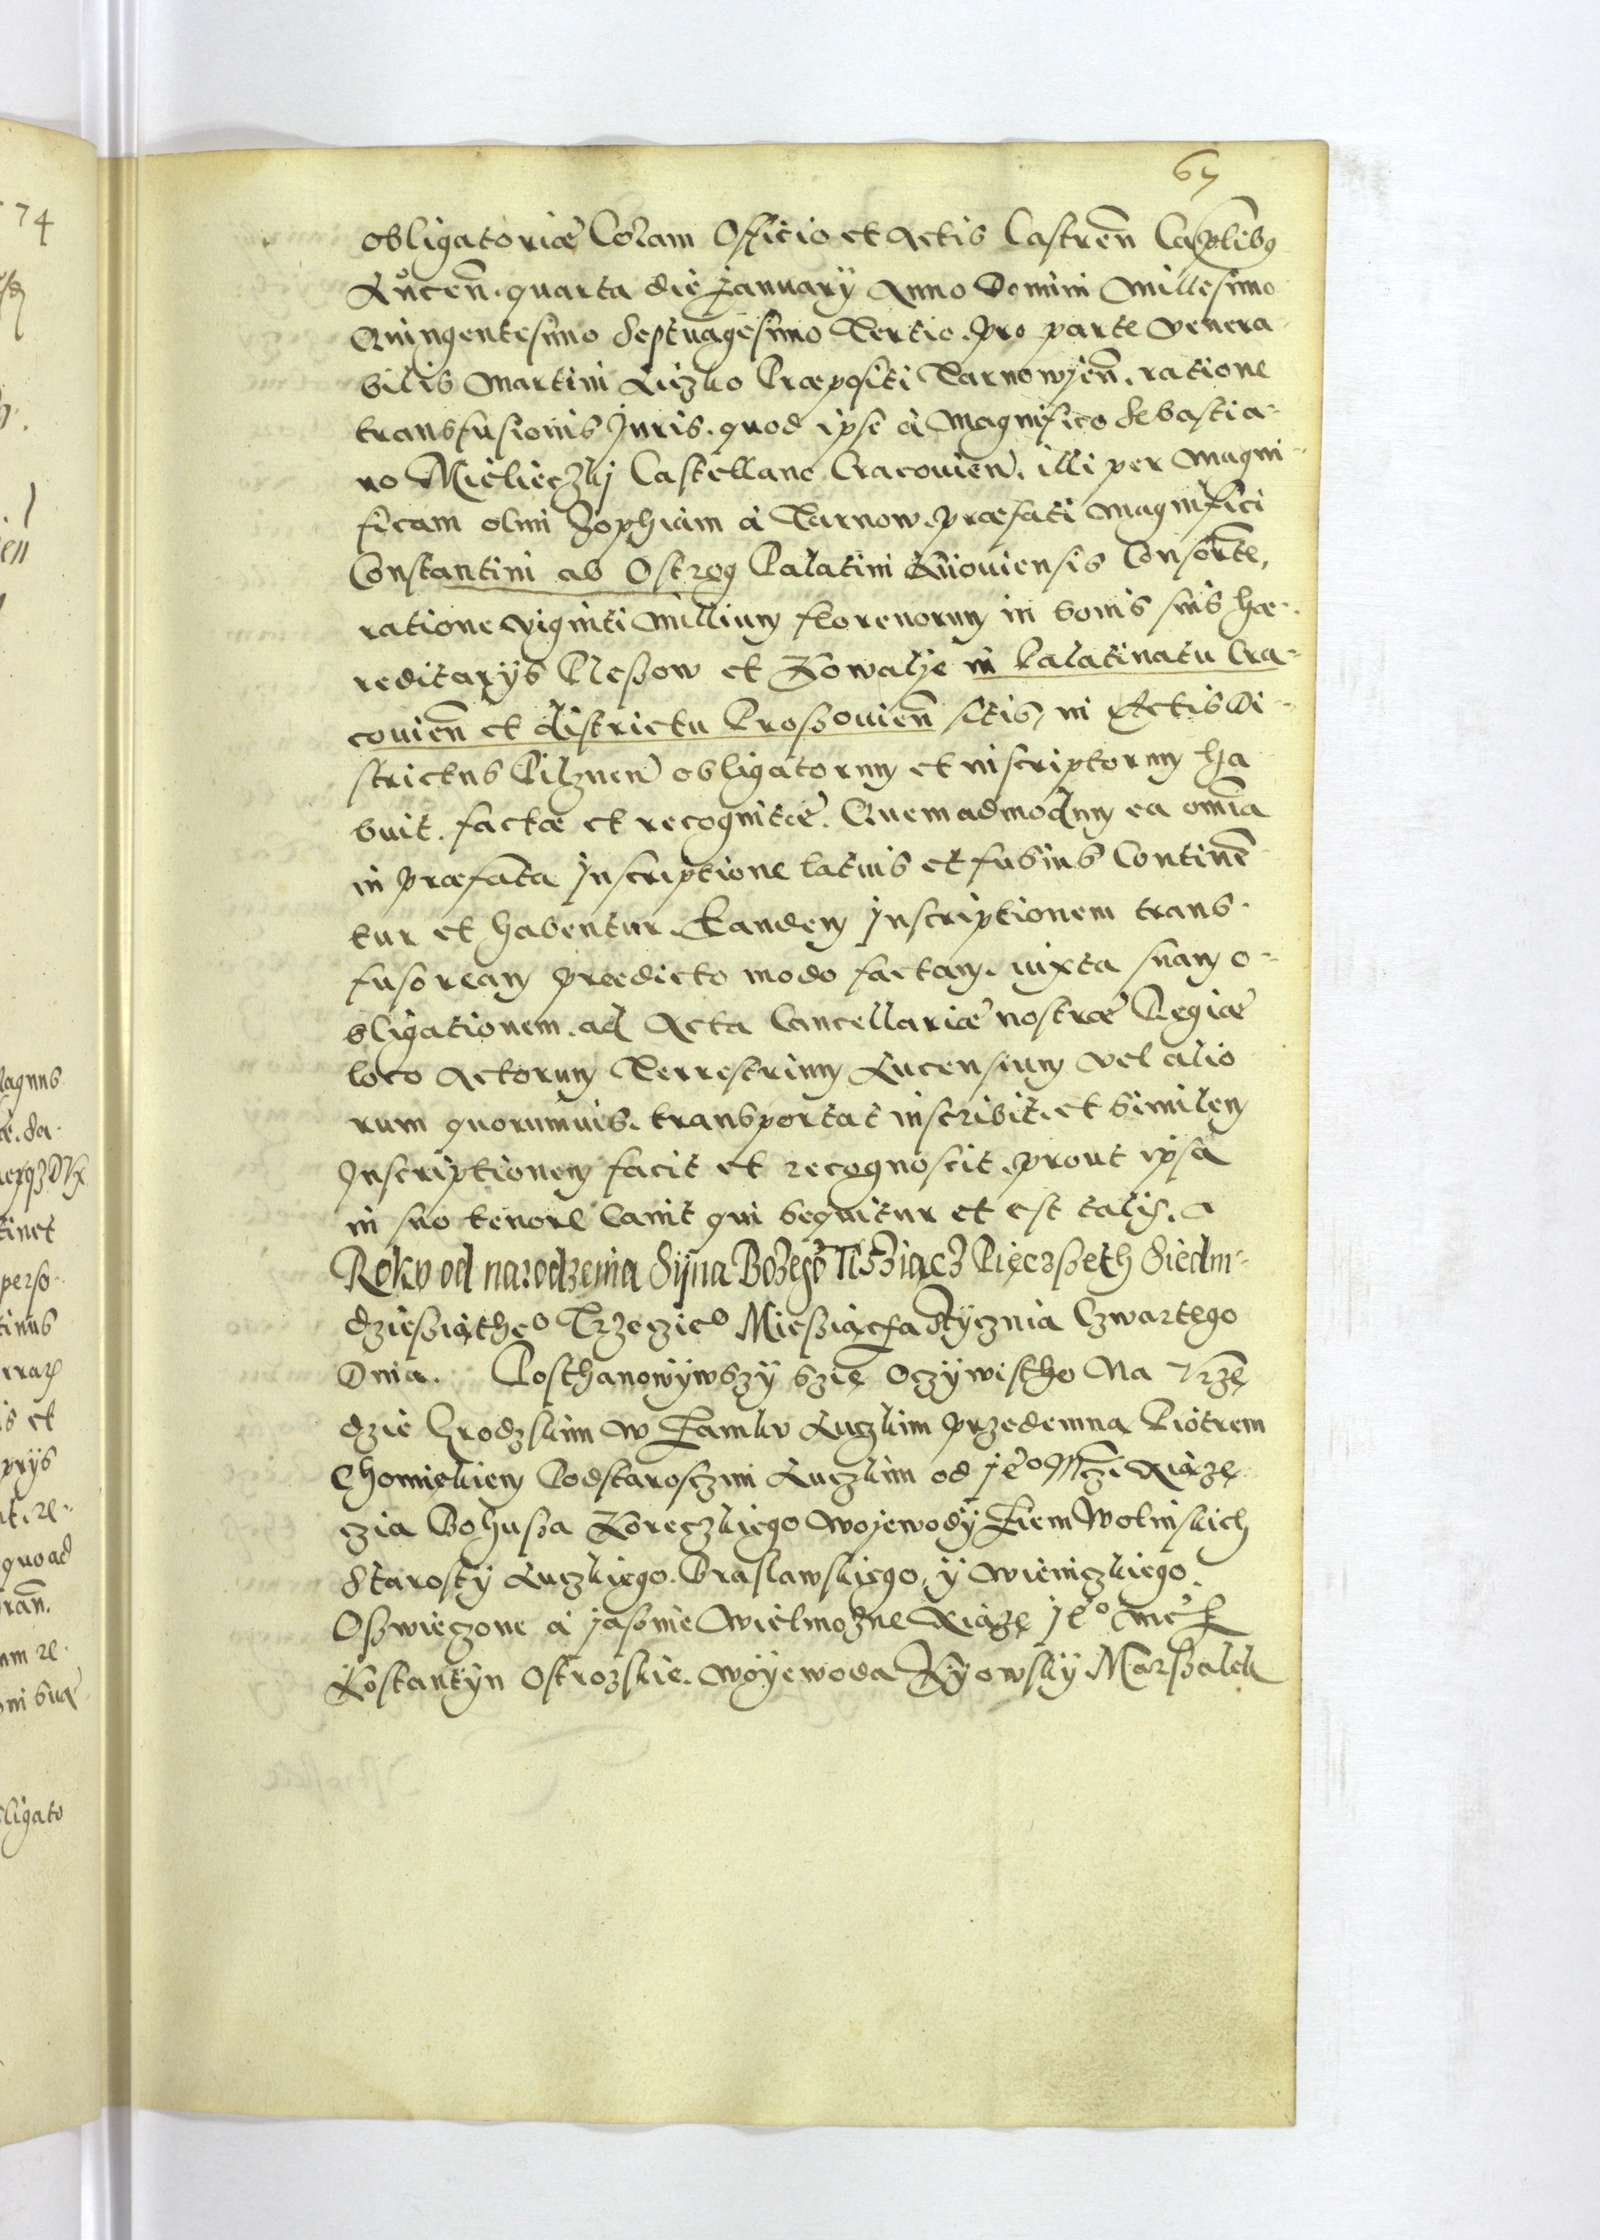 67
obligatoriæ Coram Officio et Actis Castren̄ Cap̄lib9
Lucen̄. quarta die January Anno Domini Millesimo
Quingentesimo Septuagesimo Tertio. pro parte Venera
bilis Martini Liczko Præpositi Tarnowien̄. ratione
transfusionis Juris. quod ipse à Magnifico Sebastia-
no Mielieczkj Castellano Cracovien̄. illi per Magni-
ficam olim Zophiam à Tarnow. præfati Magnifici
Constantini ab Ostrog Palatini Kiioviensis Consorte,
ratione viginti Millium florenorum in bonis suis hæ-
reditarÿs Kleßow et Kowalye in Palatinatu Cra-
covien̄ et districtu Proßovien̄ sitis, in Actis Di-
strictus Pilznen̄ obligatorum et inscriptorum ha
buit. factæ et recognitæ. Quemadmodum ea omīa
in præfata Inscriptione latius et fusius Continē
tur et habentur. Eandem Inscriptionem trans-
fusoream prædicto modo factam. iuxta suam o-
bligationem. ad Acta Cancellariæ nostræ Regiæ
loco Actorum Terrestrium Lucensium vel alio
rum quorumvis. transportat inscribit. et similem
Inscriptionem facit et recognoscit. prout ipsa
in suo tenore Canit qui sequitur et est talis.
Roku od narodzenia Sÿna Bożego Tisziącz Pięczßeth Siedm-
dzießiątheᵒ Trzeczieᵒ Mießiącza Stÿcznia Czwartego
Dnia. Posthanowÿwszÿ szię Oczÿwistho Na Vrzę
dzie Grodzskim w Zamku Luczkim przedemną Piotrem
Chomiękiem Podstarosczim Luczkim od Jeᵒ Mczi Xiążę
czia Bohußa Koreczkiego Wojewodÿ Ziem Wolinskich
Starostÿ Luczkiego. Braslawskiego, ÿ Winiczkiego.
Oßwieczone à jasnie Wielmożne Xiążę Jeᵒ Mć P
Kostantÿn Ostrozskie. Wojewoda Kÿowskÿ. Marßalek